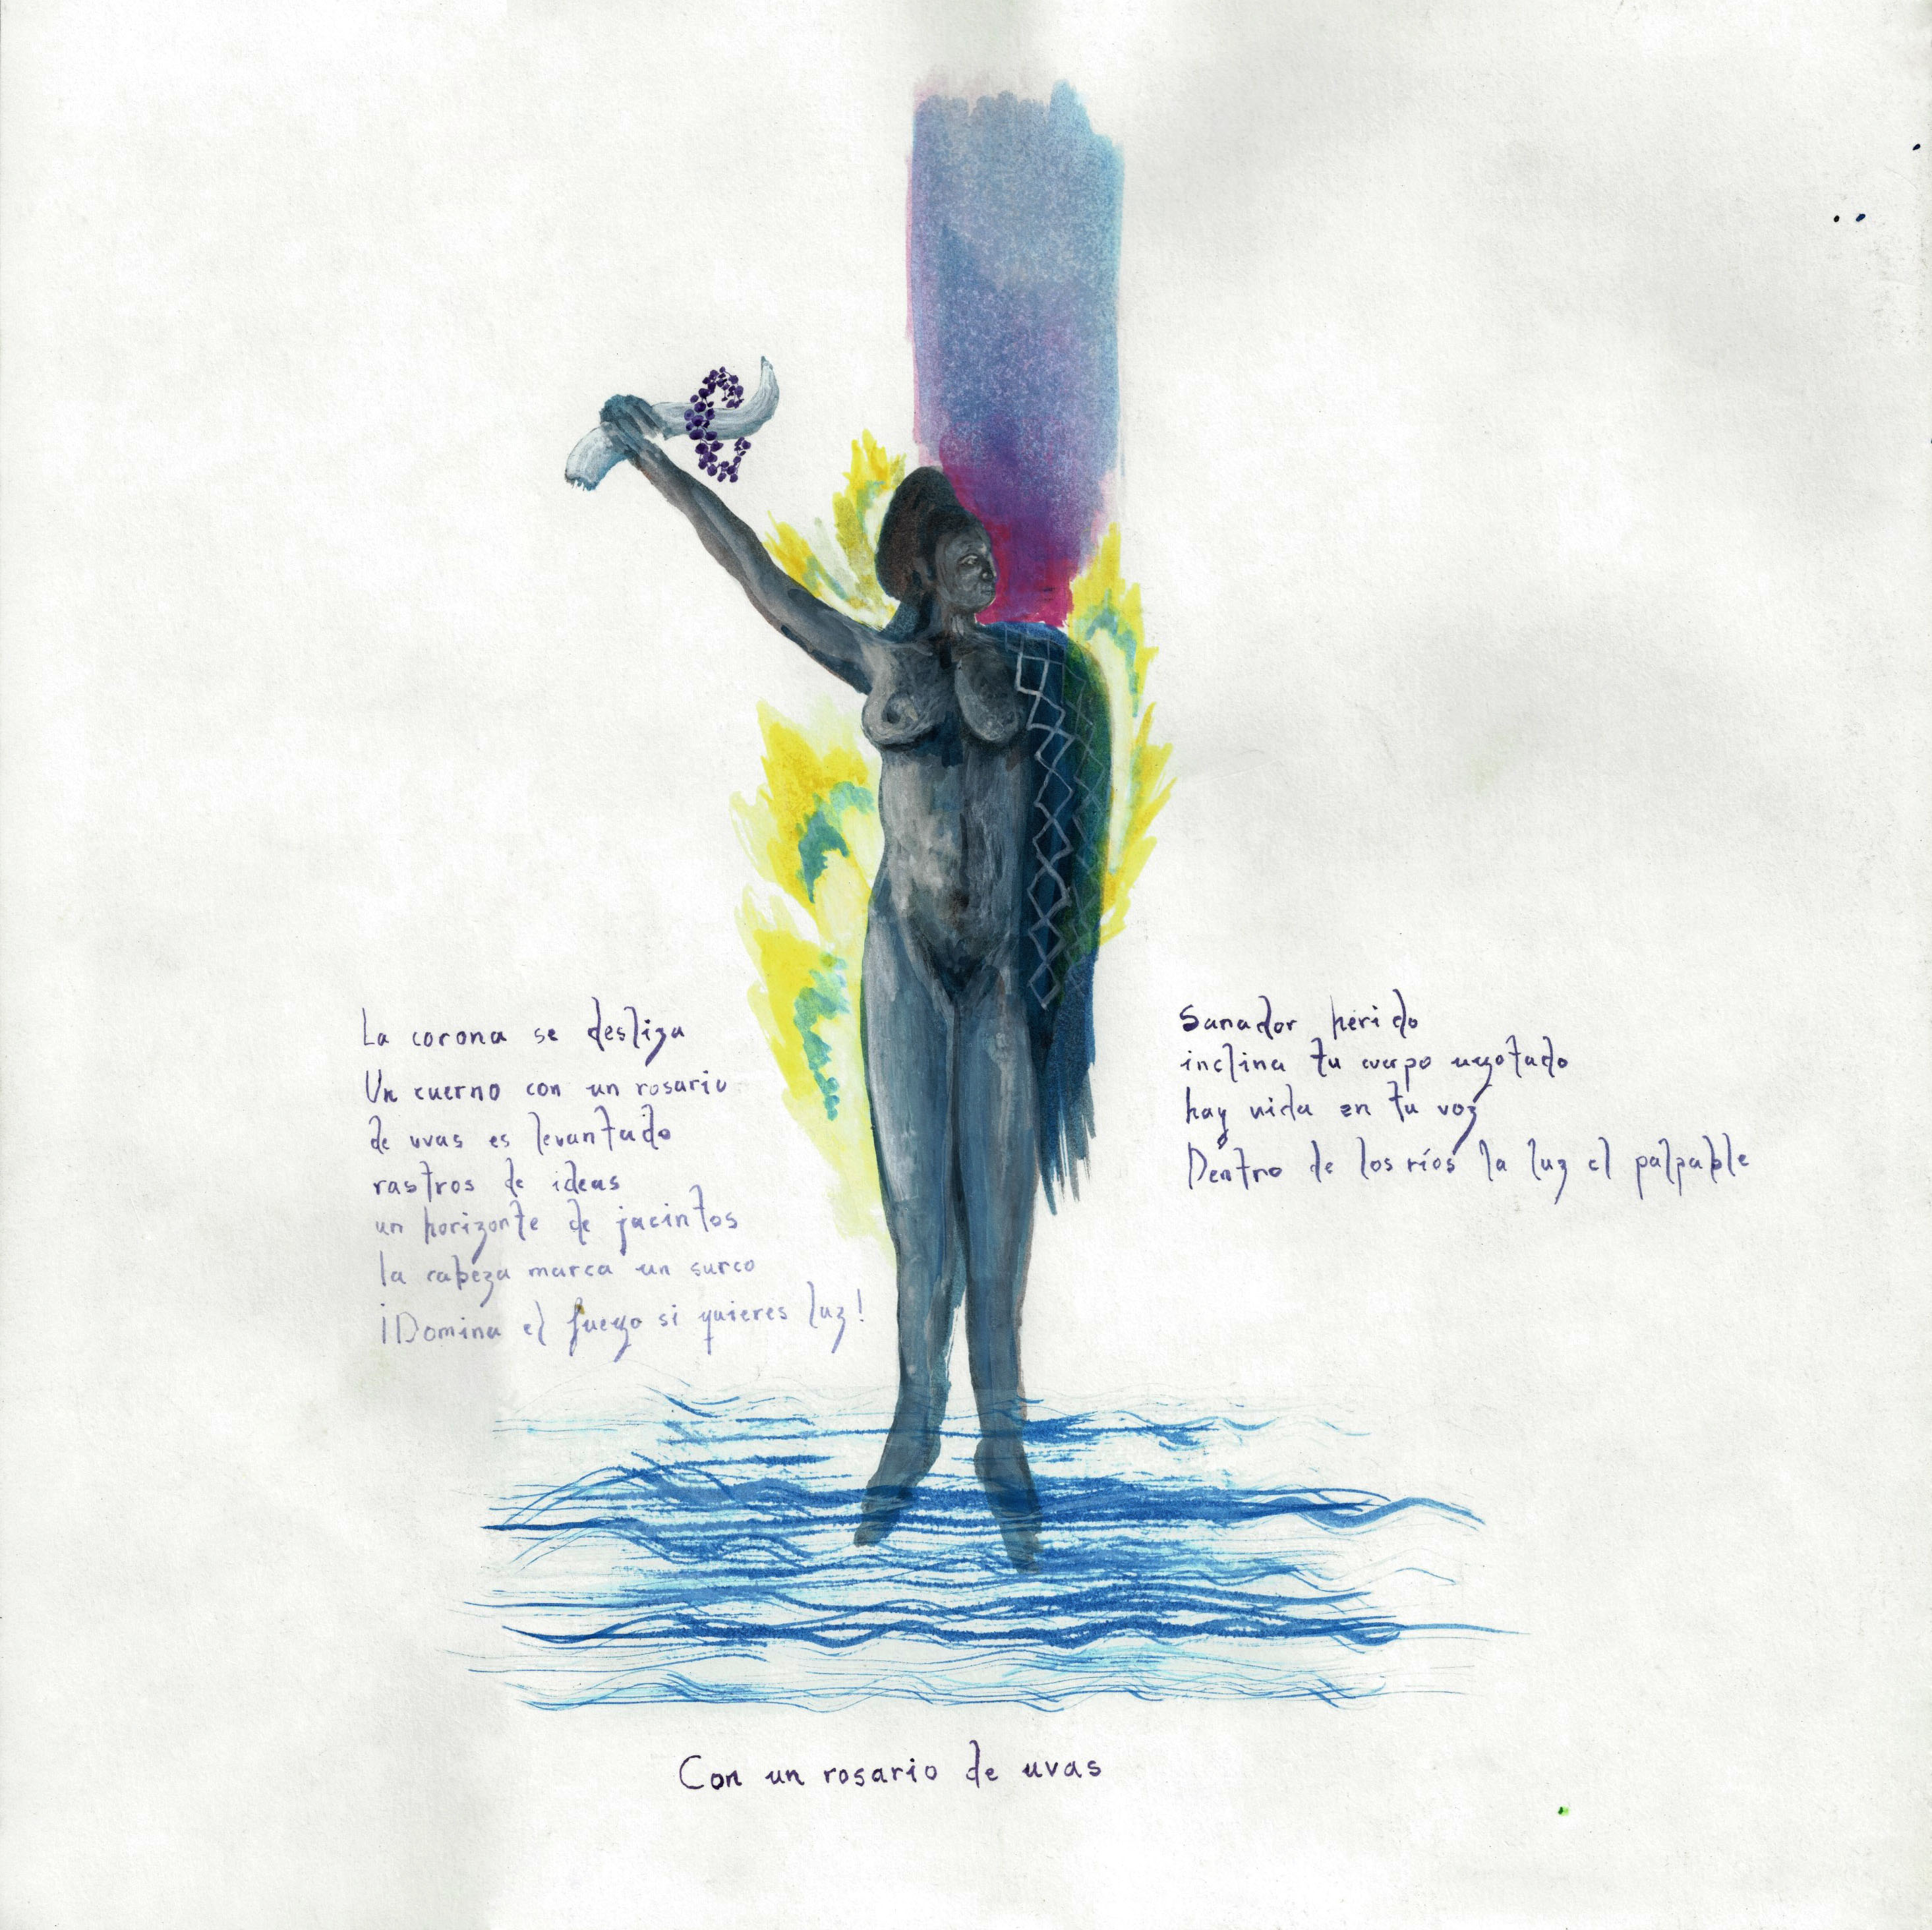 La corona se desliza
Un cuerno con un rosario
de uvas es levantado
rastros de ideas
un horizonte de jacintos
la cabeza marca un surco
¡Domina el fuego si quieres luz!
Sanador herido
inclina tu cuerpo agotado
hay vida en tu voz
Dentro de los ríos la luz el palpable
Con un rosario de uvas